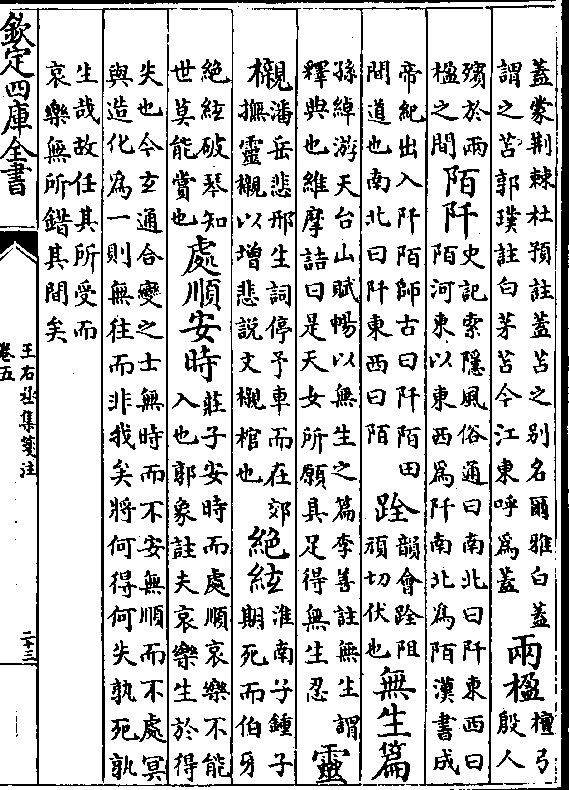 蓋蒙荆棘杜預註蓋苫之别名爾雅白蓋
謂之苫郭璞註白茅苫今江東呼為蓋
兩楹
檀弓
殷人
殯於兩
楹之間
陌阡
史記索隱風俗通曰南北曰阡東西曰
陌河東以東西為阡南北為陌漢書成
帝紀出入阡陌師古曰阡陌田
間道也南北曰阡東西曰陌
跧
韻會跧阻
頑切伏也
無生篇
孫綽游天台山賦暢以無生之篇李善註無生謂
釋典也維摩詰曰是天女所願具足得無生忍
靈
櫬
潘岳悲邢生詞停予車而在郊
撫靈櫬以增悲説文櫬棺也
絶絃
淮南子鍾子
期死而伯牙
絶絃破琴知
世莫能賞也
處順安時
莊子安時而處順哀樂不能
入也郭象註夫哀樂生於得
失也今玄通合變之士無時而不安無順而不處冥
與造化為一則無往而非我矣將何得何失孰死孰
生哉故任其所受而
哀樂無所錯其間矣
欽定四庫全書
王右丞集箋注
卷五
二十三